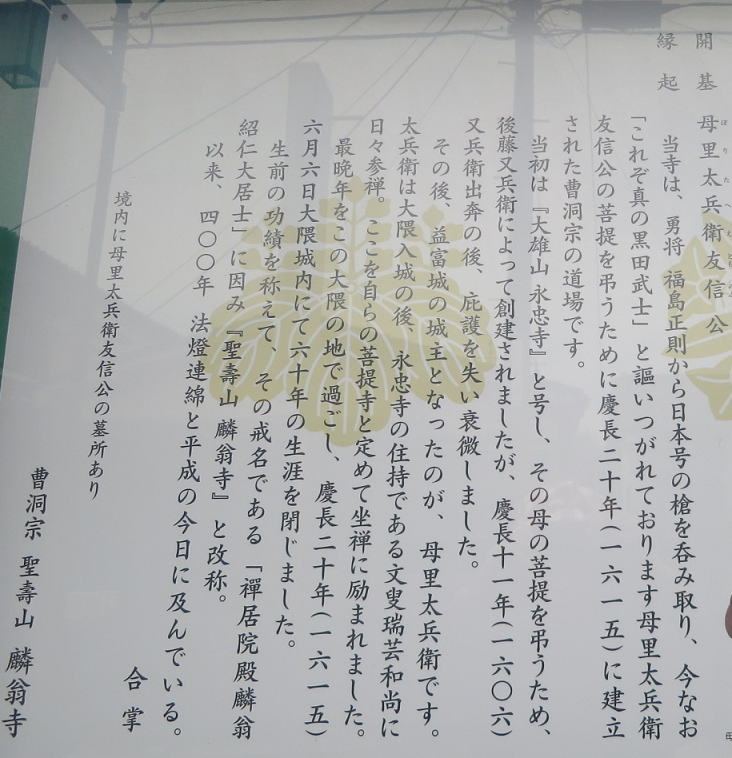 開基 母里太兵衛友信公
縁起
当寺は、勇将 福島正則から日本号の槍を呑み取り、今なお
「これぞ真の黒田武士」と謳いつがれております母里太兵衛
友信公の菩提を弔うために慶長二十年(一六一五)に建立
された曹洞宗の道場です。
当初は『大雄山 永忠寺』と号し、その母の菩提を弔うため、
後藤又兵衛によって創建されましたが、慶長十一年(一六〇六)
又兵衛出奔の後、庇護を失い衰微しました。
その後、益富城の城主となったのが、母里太兵衛です。
太兵衛は大隈入城の後、永忠寺の住持である文叟瑞芸和尚に
日々参禅。ここを自らの菩提寺と定めて坐禅に励まれました。
最晩年をこの大隈の地で過ごし、慶長二十年(一六一五)
六月六日大隈城内にて六十年の生涯を閉じました。
生前の功績を称えて、その戒名である「禪居院殿麟翁
紹仁大居士」に因み『聖壽山 麟翁寺』と改称。
以来、四〇〇年 法燈連綿と平成の今日に及んでいる。
合掌
境内に母里太兵衛友信公の墓所あり
曹洞宗 聖壽山 麟翁寺